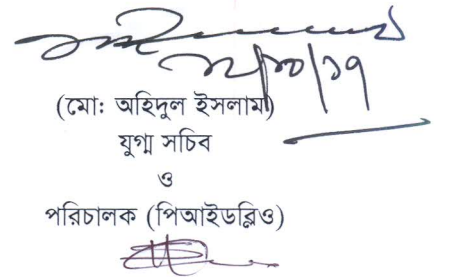 (মো: অহিদুল ইসলাম)
যুগ্ম সচিব
ও
পরিচালক (পিআইডব্লিও)